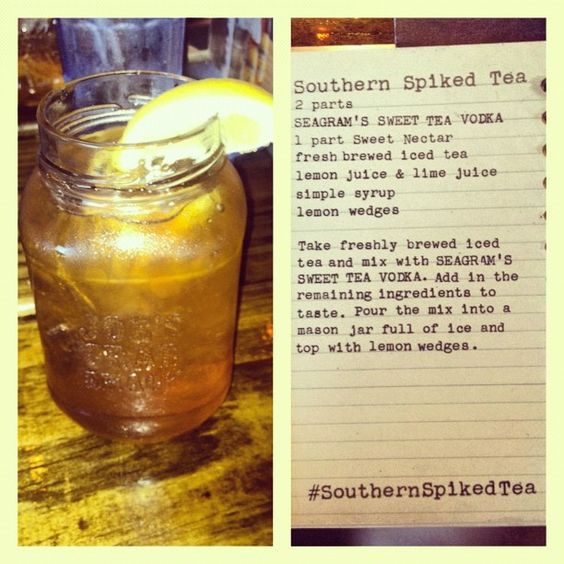 Southern Spiked Tea
2 parts
SEAGRAM'S SWEET TEA VODKA
1 part Sweet Nectar
fresh brewed iced tea
lemon juice & lime juice
simple syrup
lemon wedges
Take freshly brewed iced
tea and mix with SEAGRAM'S
SWEET TEA VODKA. Add in the
remaining ingredients to
taste. Pour the mix into a
mason jar full of ice and
top with lemon wedges.
#SouthernSpikedTea